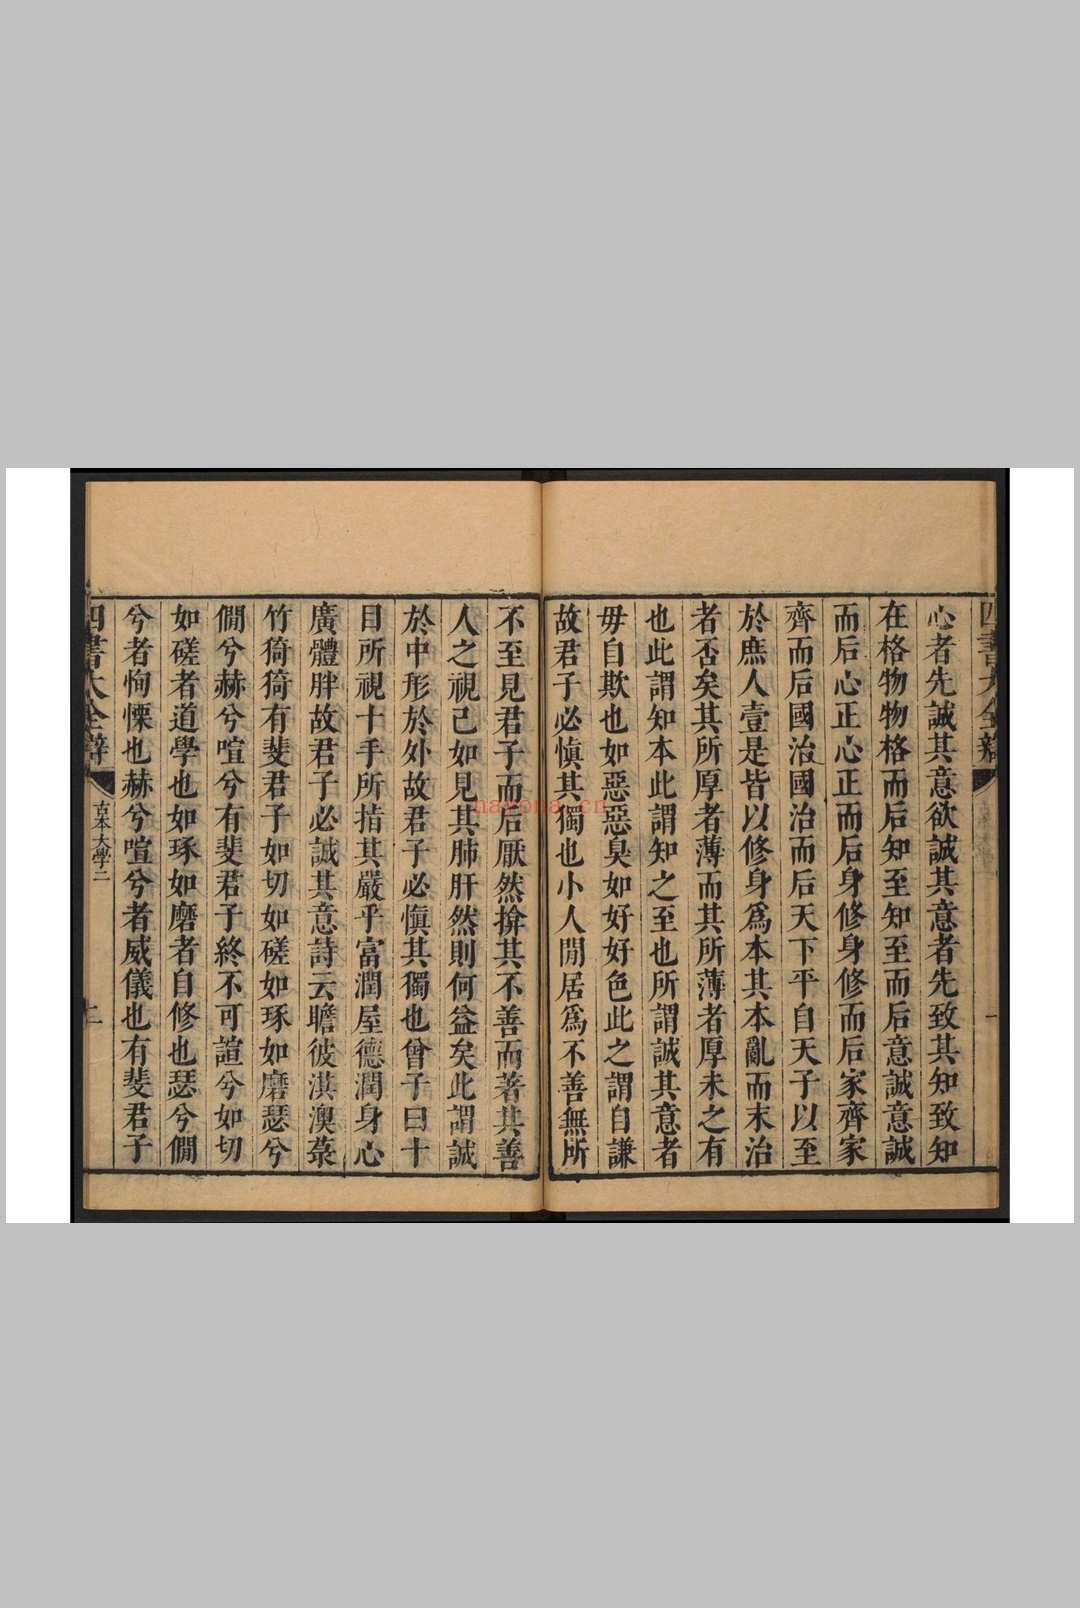 四書大全辯
一
心者先誠其意欲誠其意者先致其知致知
在格物物格而后知至知至而后意誠意誠
而后心正心正而后身修身修而后家齊家
齊而后國治國治而后天下平自天子以至
於庶人壹是皆以修身爲本其本亂而末治
者否矣其所厚者薄而其所薄者厚未之有
也此謂知本此謂知之至也所謂誠其意者
毋自欺也如惡惡臭如好好色此之謂自謙
故君子必愼其獨也小人閒居爲不善無所
不至見君子而后厭然揜其不善而著其善
人之視己如見其肺肝然則何益矣此謂誠
於中形於外故君子必愼其獨也曾子曰十
目所視十手所指其嚴乎富潤屋德潤身心
廣體胖故君子必誠其意詩云瞻彼淇澳菉
竹猗猗有斐君子如切如磋如琢如磨瑟兮
僩兮赫兮喧兮有斐君子終不可諠兮如切
如磋者道學也如琢如磨者自修也瑟兮僩
兮者恂慄也赫兮喧兮者威儀也有斐君子
四書大全辯
古本大學二
二
nayona.cn